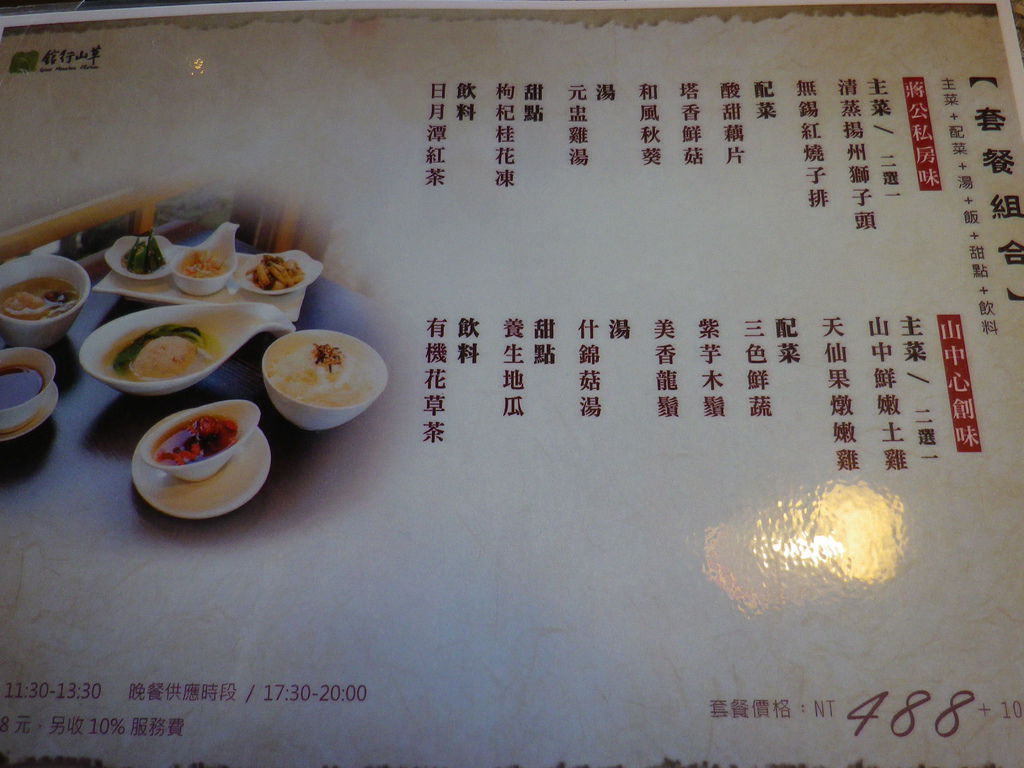 【套餐組合】
主菜+配菜+湯+飯+甜點+飲料
蔣公私房味
主菜/二選一
清蒸揚州獅子頭
無錫紅燒子排
配菜
酸甜藕片
塔香鮮菇
和風秋葵
湯
元盅雞湯
甜點
枸杞桂花凍
飲料
日月潭紅茶
山中心創味
主菜/二選一
山中鮮嫩土雞
天仙果燉嫩雞
配菜
三色鮮蔬
紫芋木鬚
美香龍鬚
湯
什錦菇湯
甜點
養生地瓜
飲料
有機花草茶
草山行館
11:30-13:30 晚餐供應時段 / 17:30-20:00
8 元,另收 10% 服務費
套餐價格:NT 488 + 10